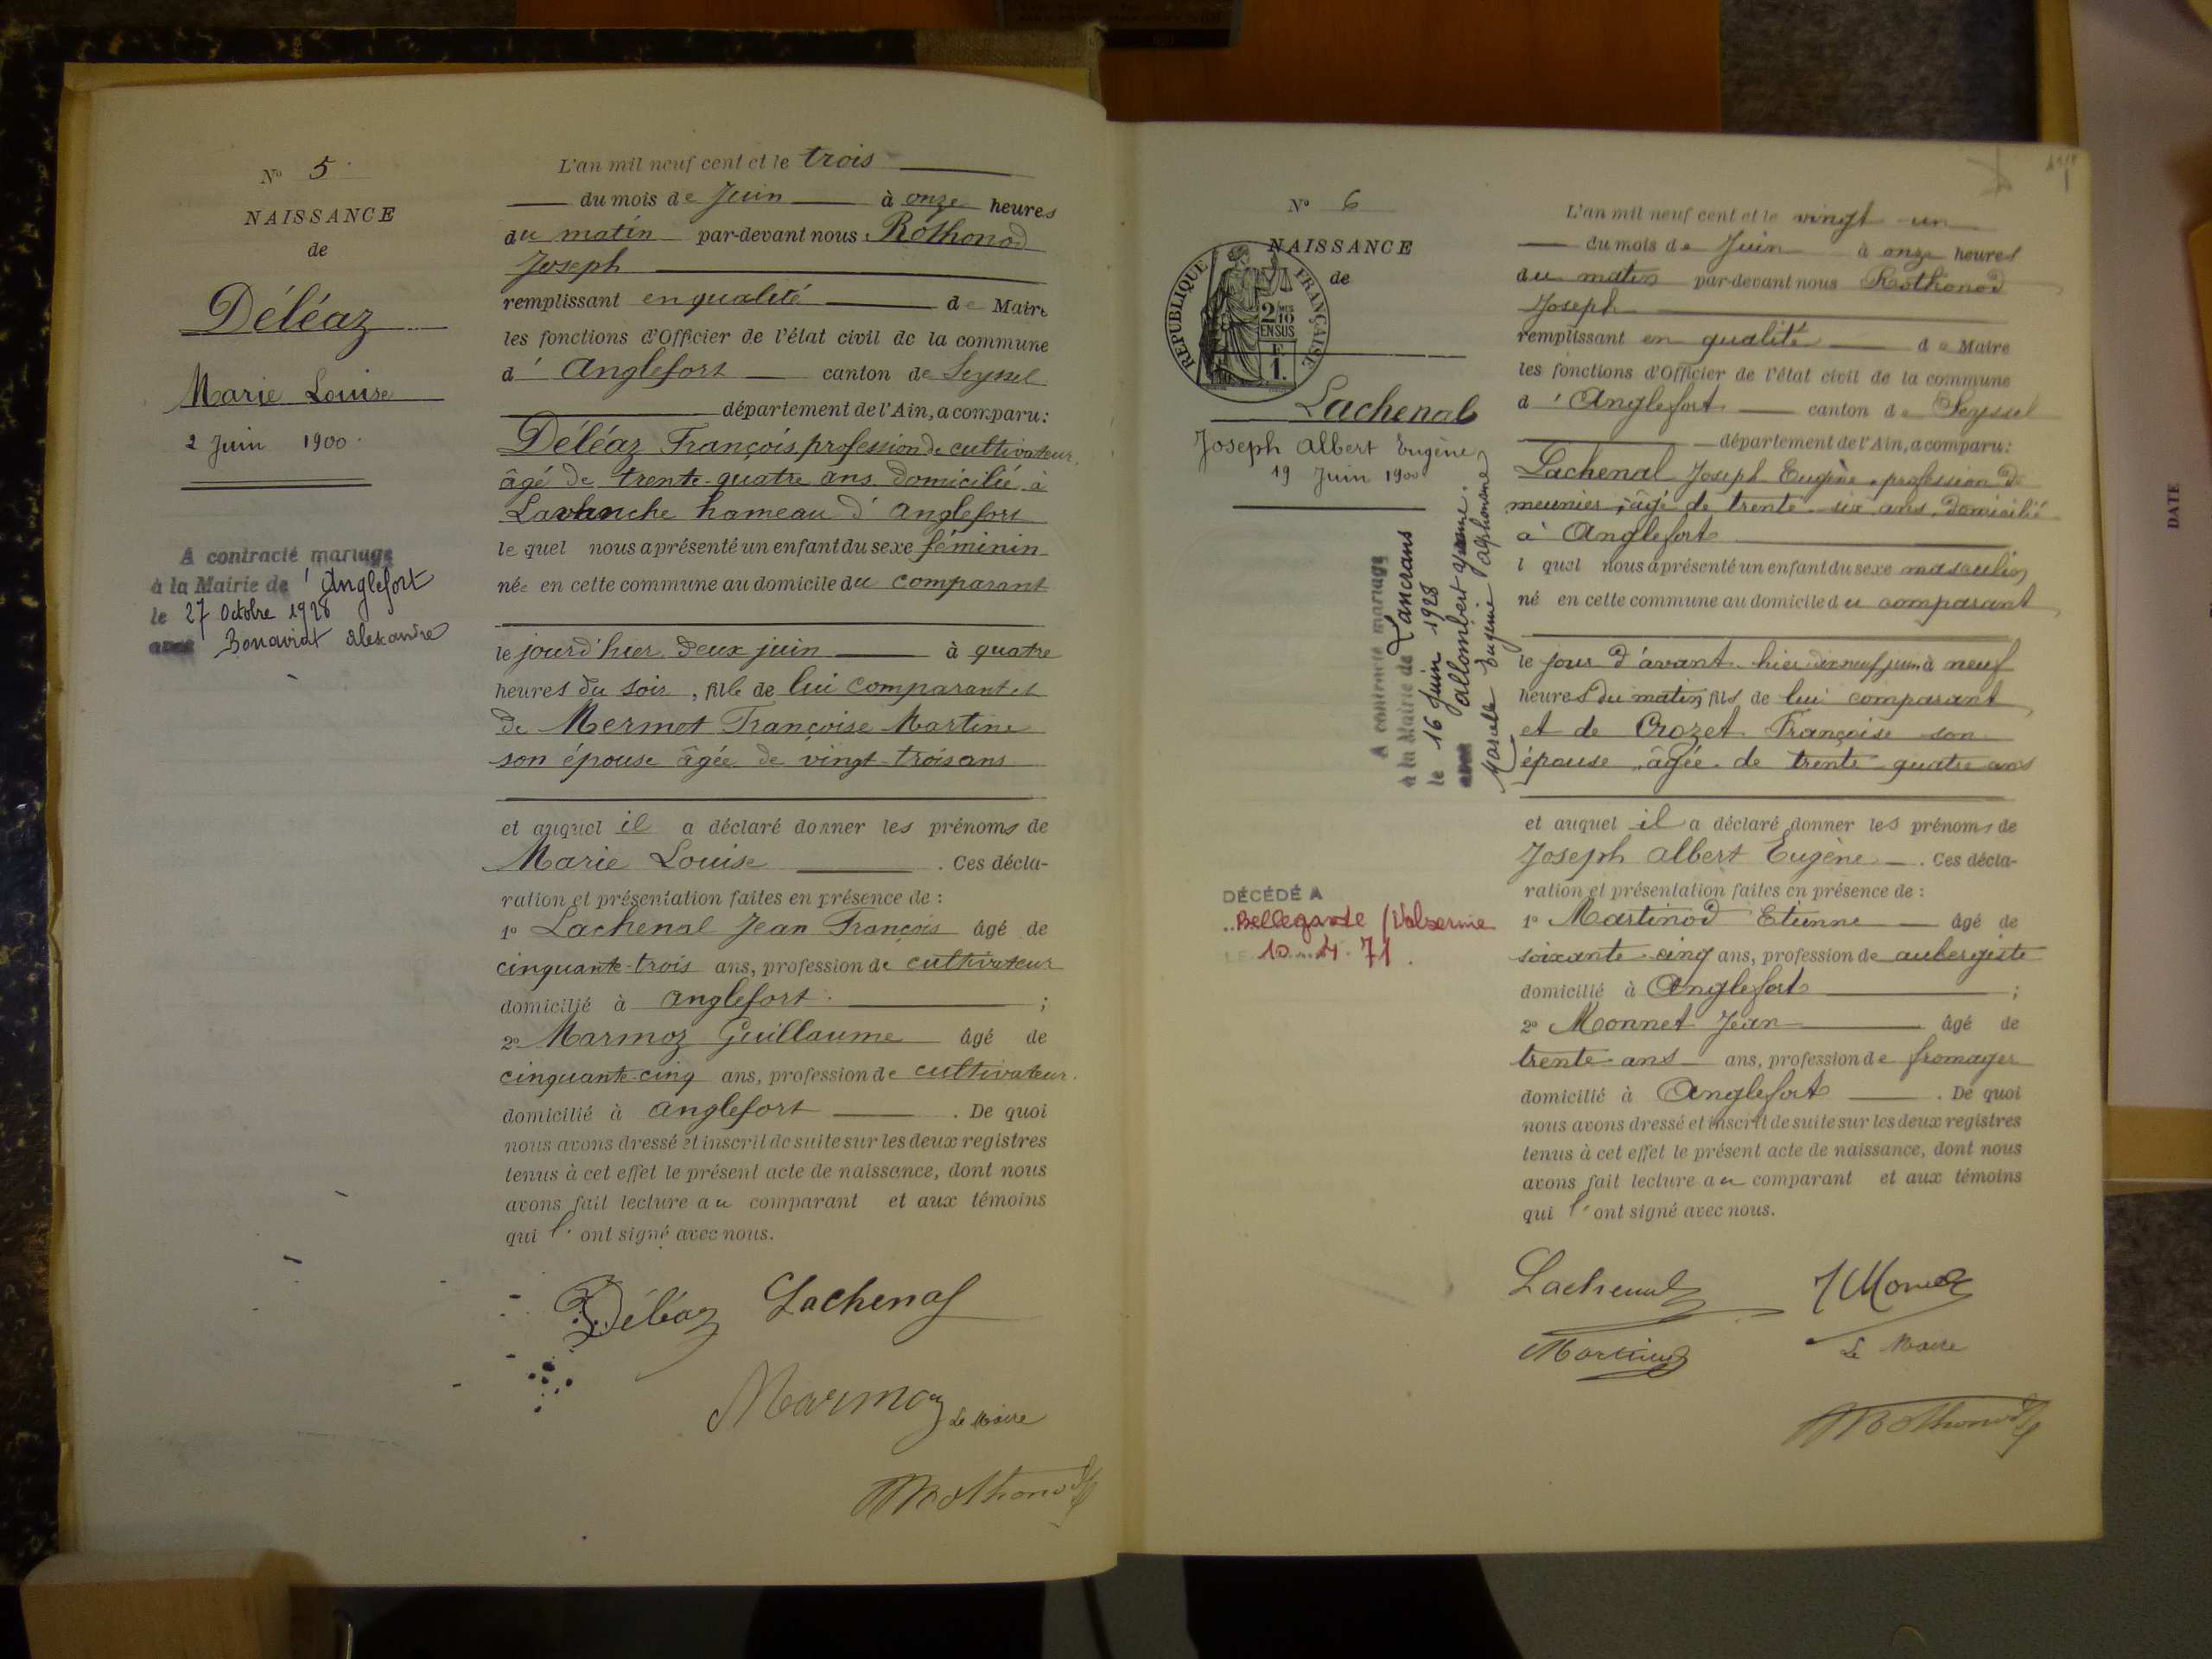 N° 5
NAISSANCE
de
Déléaz
Marie Louise
2 Juin 1900
A contracté mariage
à la Mairie de d'Anglefort
le 27 Octobre 1928
avec Bonavirat Alexandre
L'an mil neuf cent et le trois
du mois de Juin à onze heures
du matin par-devant nous Rothonod
Joseph
remplissant en qualité de Maire
les fonctions d'Officier de l'état civil de la commune
d' Anglefort canton de Seyssel
département de l'Ain, a comparu:
Déléaz François, profession de cultivateur,
âgé de trente-quatre ans domicilié à
Lavanche hameau d'Anglefort
le quel nous a présenté un enfant du sexe féminin
née en cette commune au domicile du comparant
le jour d'hier deux juin à quatre
heures du soir, fille de lui comparant et
de Mermot Françoise Martine
son épouse âgée de vingt-trois ans
et auquel il a déclaré donner les prénoms de
Marie Louise. Ces décla-
ration et présentation faites en présence de :
1° Lachenal Jean François âgé de
cinquante-trois ans, profession de cultivateur
domicilié à Anglefort ;
2° Marmoz Guillaume âgé de
cinquante-cinq ans, profession de cultivateur.
domicilié à Anglefort. De quoi
nous avons dressé et inscrit de suite sur les deux registres
tenus à cet effet le présent acte de naissance, dont nous
avons fait lecture au comparant et aux témoins
qui l'ont signé avec nous.
Déléaz Lachenal
Marmoz Le Maire
Rothonod
N° 6
NAISSANCE
de
REPUBLIQUE FRANÇAISE
2/10 EN SUS
F 1.
Lachenal
Joseph Albert Eugène
19 Juin 1900
A contracté mariage
à la Mairie de Lancrans
le 16 Juin 1928
avec Allombert
Marcelle Eugénie
DÉCÉDÉ A
Bellegarde /Valserine
LE 10.4.71.
L'an mil neuf cent et le vingt un
du mois de Juin à onze heures
du matin par-devant nous Rothonod
Joseph
remplissant en qualité de Maire
les fonctions d'Officier de l'état civil de la commune
d' Anglefort canton de Seyssel
département de l'Ain, a comparu:
Lachenal Joseph Eugène, profession de
meunier, âgé de trente-six ans, domicilié
à Anglefort
l quel nous a présenté un enfant du sexe masculin
né en cette commune au domicile du comparant
le jour d'avant-hier dix neuf juin à neuf
heures du matin, fils de lui comparant
et de Crozet Françoise son
épouse âgée de trente-quatre ans
et auquel il a déclaré donner les prénoms de
Joseph Albert Eugène. Ces décla-
ration et présentation faites en présence de :
1° Martinod Etienne âgé de
soixante-cinq ans, profession de aubergiste
domicilié à Anglefort ;
2° Monnet Jean âgé de
trente ans ans, profession de fromager
domicilié à Anglefort. De quoi
nous avons dressé et inscrit de suite sur les deux registres
tenus à cet effet le présent acte de naissance, dont nous
avons fait lecture au comparant et aux témoins
qui l'ont signé avec nous.
Lachenal J Monnet
Martinod Le Maire
Rothonod
DATE